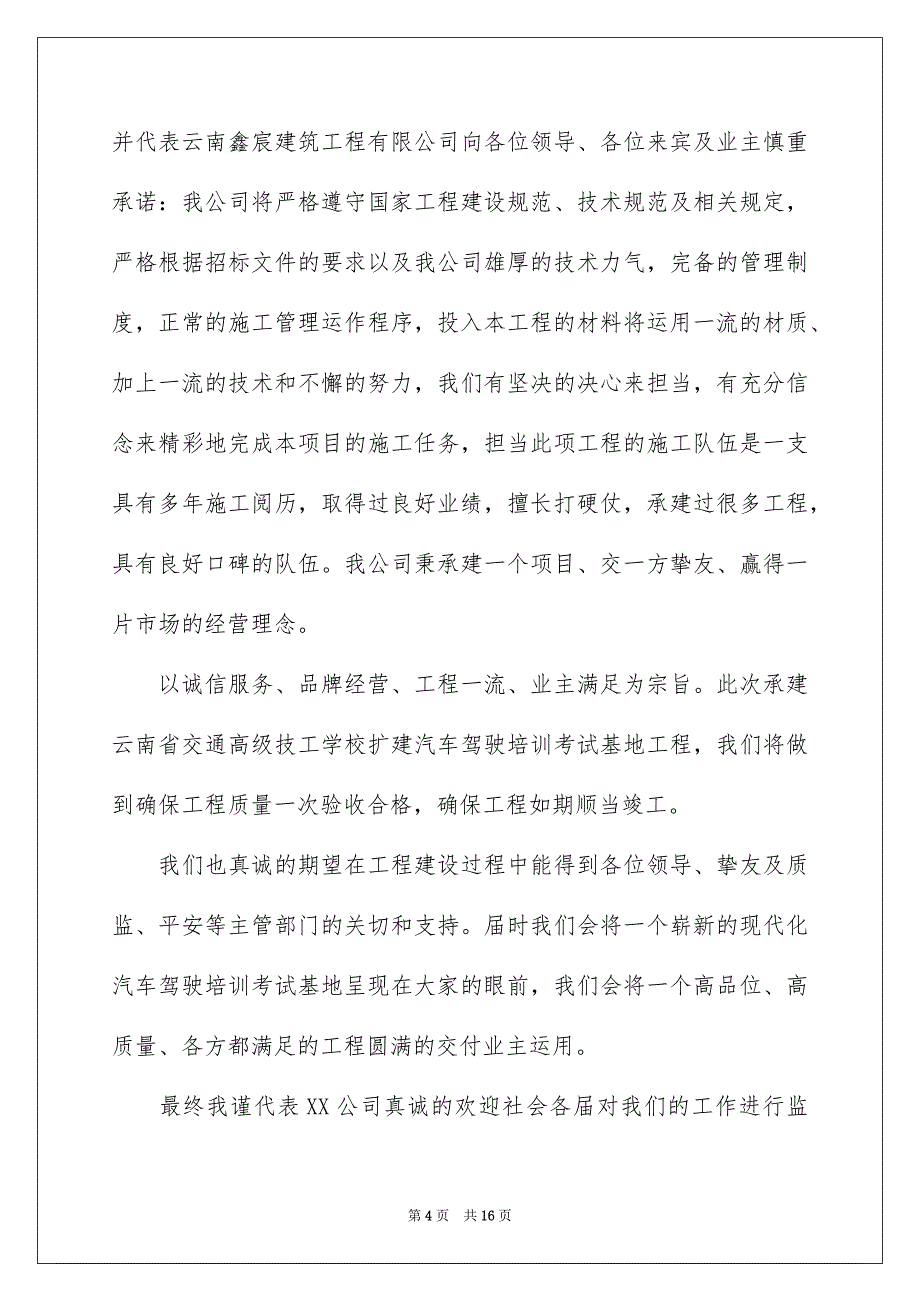 并代表云南鑫宸建筑工程有限公司向各位领导、各位来宾及业主慎重
承诺：我公司将严格遵守国家工程建设规范、技术规范及相关规定，
严格根据招标文件的要求以及我公司雄厚的技术力气，完备的管理制
度，正常的施工管理运作程序，投入本工程的材料将运用一流的材质、
加上一流的技术和不懈的努力，我们有坚决的决心来担当，有充分信
念来精彩地完成本项目的施工任务，担当此项工程的施工队伍是一支
具有多年施工阅历，取得过良好业绩，擅长打硬仗，承建过很多工程，
具有良好口碑的队伍。我公司秉承建一个项目、交一方挚友、赢得一
片市场的经营理念。
以诚信服务、品牌经营、工程一流、业主满足为宗旨。此次承建
云南省交通高级技工学校扩建汽车驾驶培训考试基地工程，我们将做
到确保工程质量一次验收合格，确保工程如期顺当竣工。
我们也真诚的期望在工程建设过程中能得到各位领导、挚友及质
监、平安等主管部门的关切和支持。届时我们会将一个崭新的现代化
汽车驾驶培训考试基地呈现在大家的眼前，我们会将一个高品位、高
质量、各方都满足的工程圆满的交付业主运用。
最终我谨代表 XX 公司真诚的欢迎社会各届对我们的工作进行监
第 4 页 共 16 页